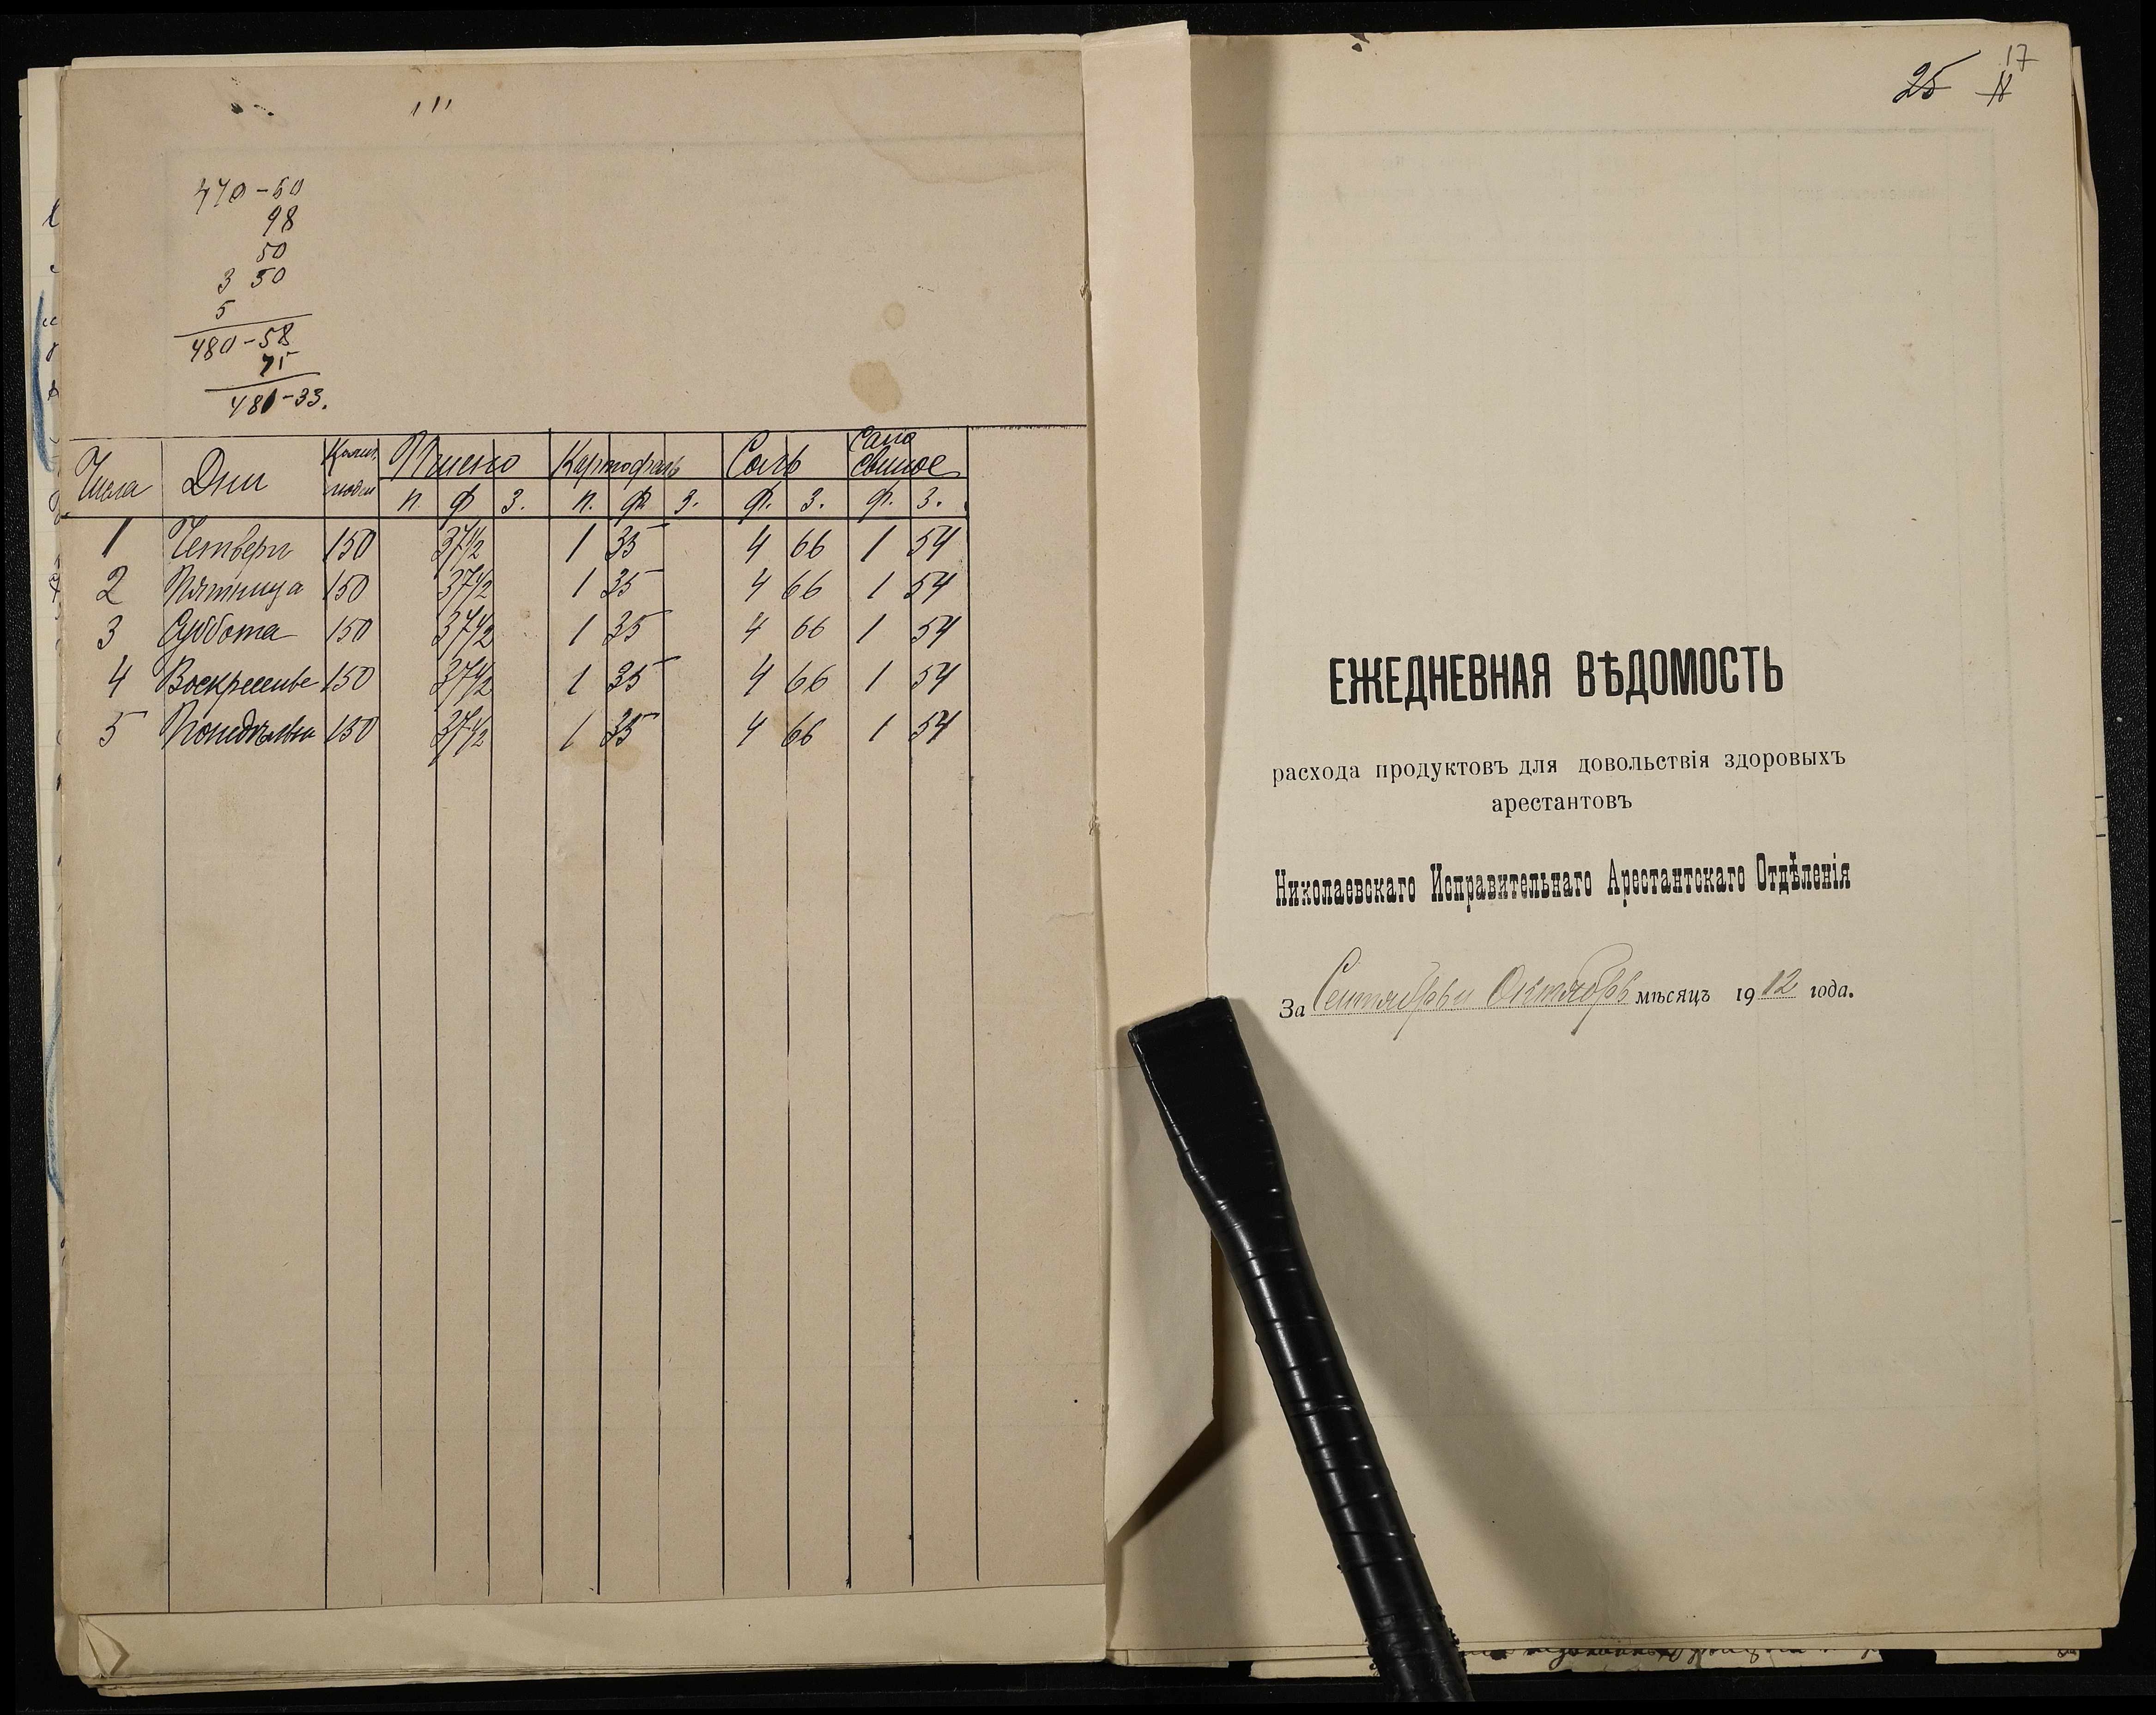 470-60
98
50
3 50
5
480-58
75
481-33.
Числа Дни Колич. людей Пшено Картофель Соль Сало свиное
п. ф. з. п. ф. з. ф. з. ф. з.
1 Четверг 150 37½ 1 35 4 66 1 54
2 Пятница 150 37½ 1 35 4 66 1 54
3 Суббота 150 37½ 1 35 4 66 1 54
4 Воскресенье 150 37½ 1 35 4 66 1 54
5 Понедельн 150 37½ 1 35 4 66 1 54
17
25 18
ЕЖЕДНЕВНАЯ ВѢДОМОСТЬ
расхода продуктовъ для довольствія здоровыхъ
арестантовъ
Николаевскаго Исправительнаго Арестантскаго Отдѣленія
За Сентябрь и Октябрь мѣсяцъ 1912 года.